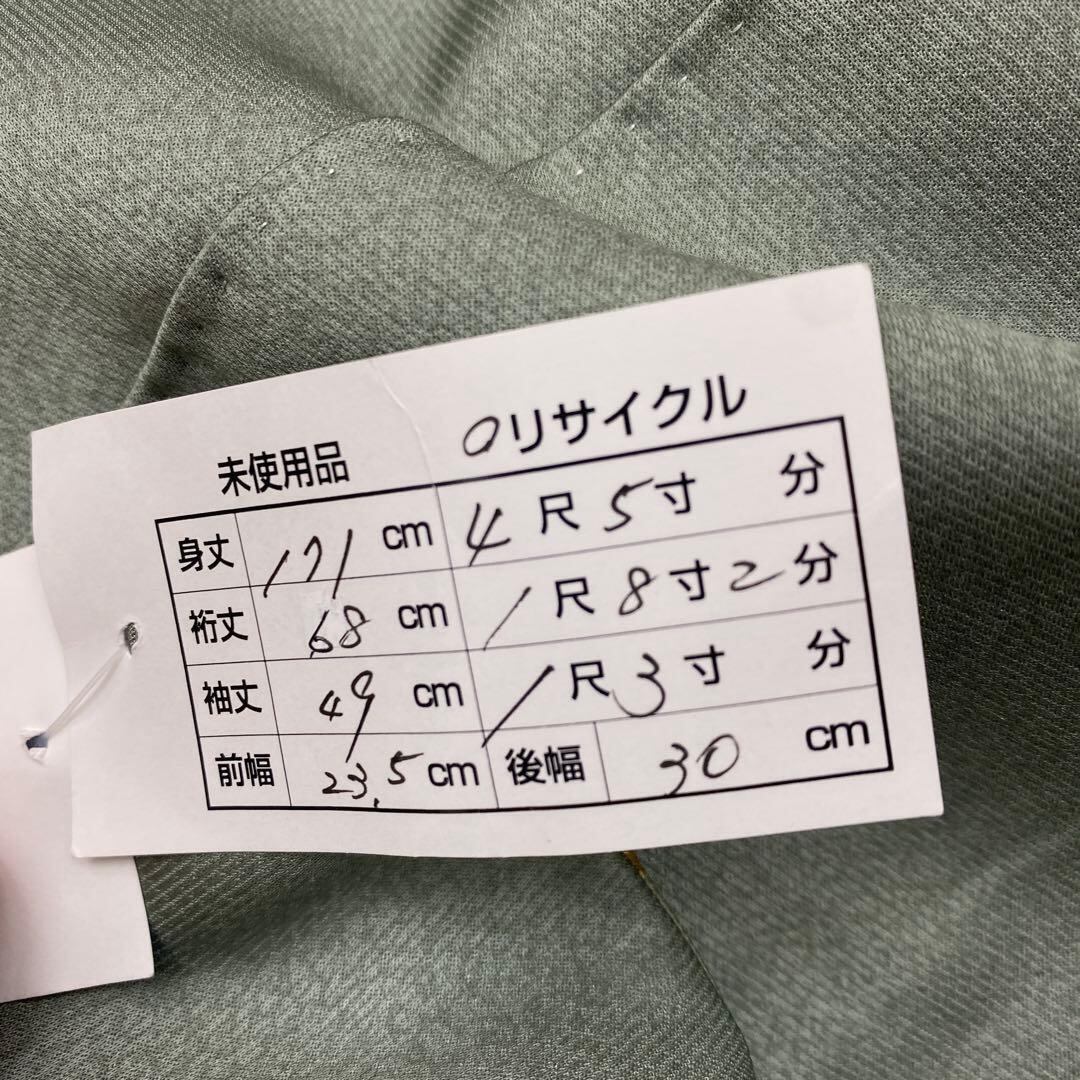 未使用品 ○リサイクル
身丈 171 cm 4尺5寸 分
裄丈 68 cm 1尺8寸2分
袖丈 49 cm 1尺3寸 分
前幅 23.5 cm 後幅 30 cm